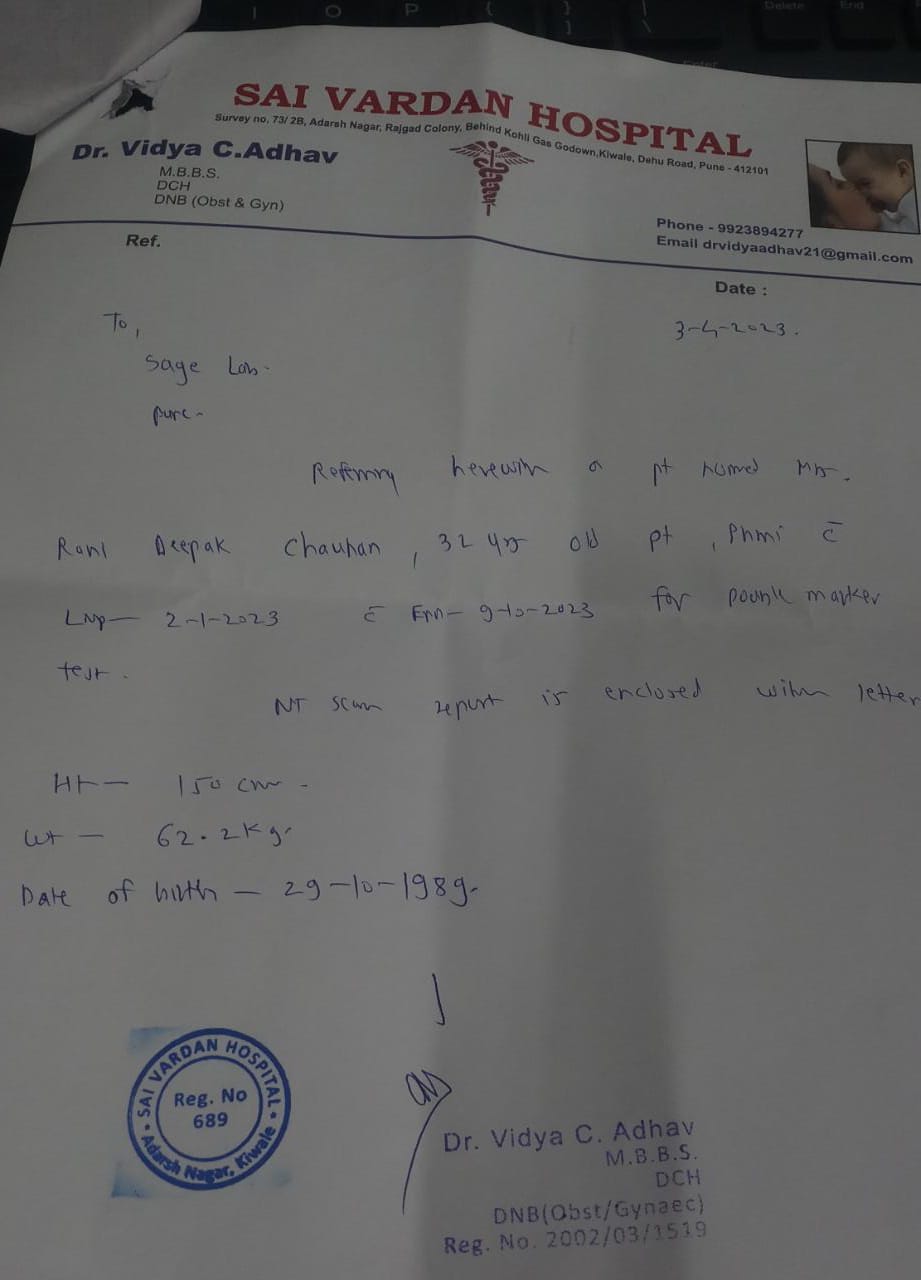 SAI VARDAN HOSPITAL
Survey no. 73/ 2B, Adarsh Nagar, Rajgad Colony, Behind Kohli Gas Godown,Kiwale, Dehu Road, Pune - 412101
Dr. Vidya C.Adhav
M.B.B.S.
DCH
DNB (Obst & Gyn)
Phone - 9923894277
Email drvidyaadhav21@gmail.com
Ref.
Date :
3-4-2023.
To,
Sage Lab.
pune
Referring herewith a pt named Mrs.
Rani Deepak Chauhan, 32 yrs old pt, c̄
Lmp- 2-1-2023 c̄ EDD- 9-10-2023 for double marker
test.
NT scan report is enclosed with letter
Ht- 150 cm.
wt - 62.2kg.
Date of birth - 29-10-1989.
SAI VARDAN HOSPITAL
Reg. No
689
Adarsh Nagar, Kiwale
Dr. Vidya C. Adhav
M.B.B.S.
DCH
DNB(Obst/Gynaec)
Reg. No. 2002/03/1519
I O P { } | \
Delete End
Enter